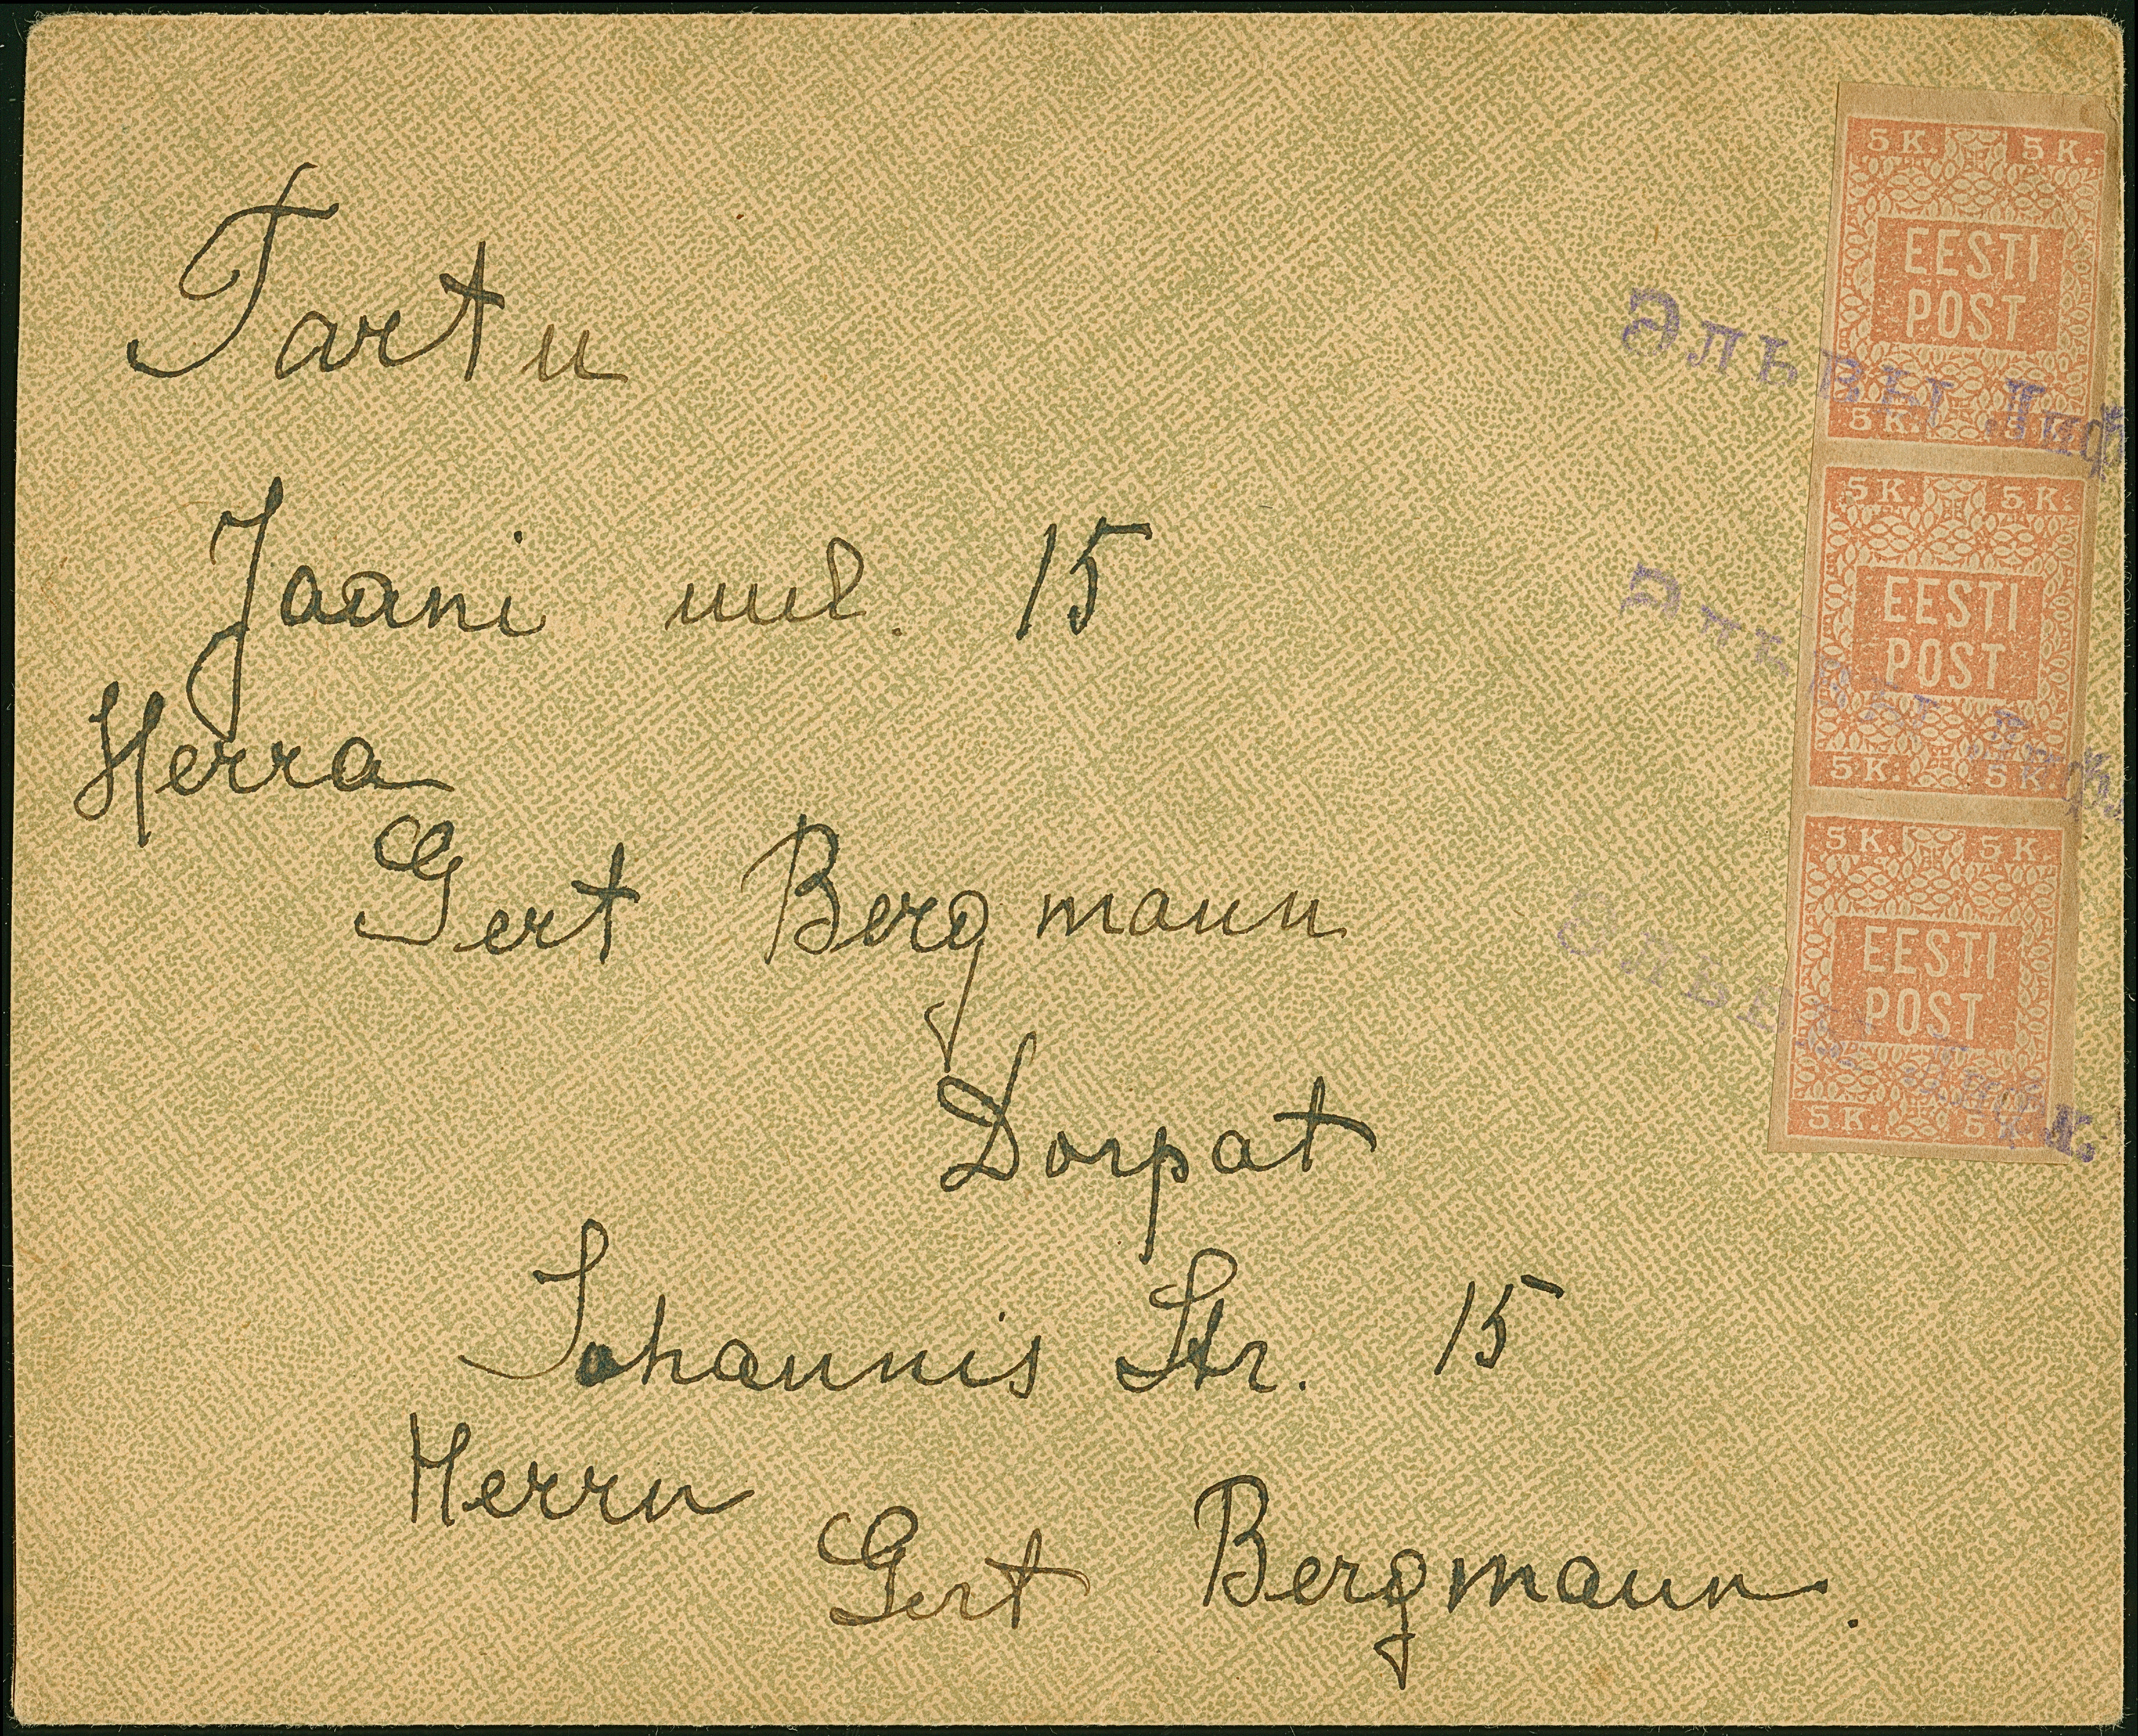 Tartu
Jaani uul. 15
Herra
Gert Bergmann
Dorpat
Johannis Str. 15
Herrn
Gert Bergmann.
5 K. 5 K.
EESTI
POST
5 K. 5 K.
5 K. 5 K.
EESTI
POST
5 K. 5 K.
5 K. 5 K.
EESTI
POST
5 K. 5 K.
Эльвы Лиф
Эльвы Лифл
Эльвы Лифл.